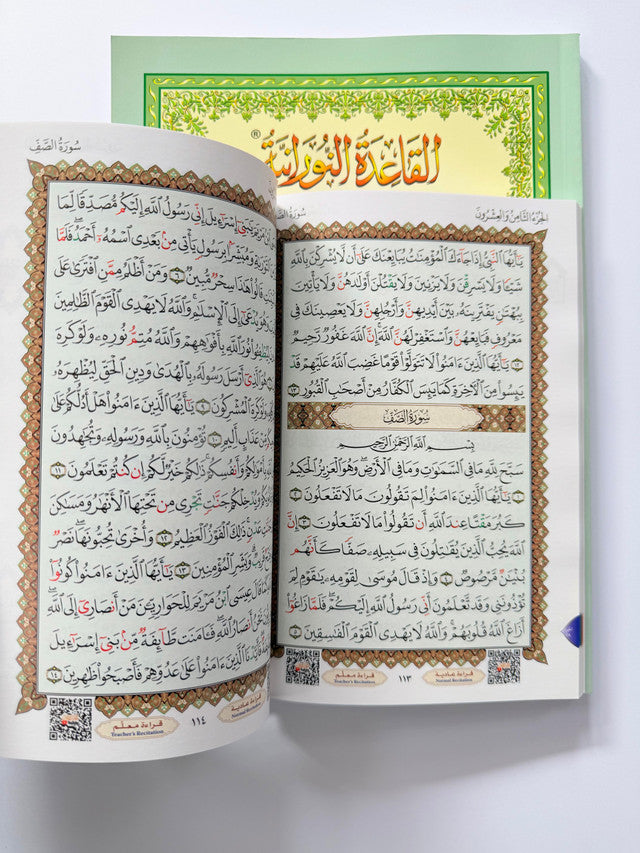 القَاعِدَةُ النُّورَانِيَّة
الجُزءُ الثَّامِنُ وَالعِشْرُونَ
سُورَةُ الصَّفِّ
يَٰٓأَيُّهَا ٱلنَّبِيُّ إِذَا جَآءَكَ ٱلْمُؤْمِنَٰتُ يُبَايِعْنَكَ عَلَىٰٓ أَن لَّا يُشْرِكْنَ بِٱللَّهِ
شَيْـًٔا وَلَا يَسْرِقْنَ وَلَا يَزْنِينَ وَلَا يَقْتُلْنَ أَوْلَٰدَهُنَّ وَلَا يَأْتِينَ
بِبُهْتَٰنٍ يَفْتَرِينَهُۥ بَيْنَ أَيْدِيهِنَّ وَأَرْجُلِهِنَّ وَلَا يَعْصِينَكَ فِى
مَعْرُوفٍ فَبَايِعْهُنَّ وَٱسْتَغْفِرْ لَهُنَّ ٱللَّهَ إِنَّ ٱللَّهَ غَفُورٌ رَّحِيمٌ
١٢ يَٰٓأَيُّهَا ٱلَّذِينَ ءَامَنُوا۟ لَا تَتَوَلَّوْا۟ قَوْمًا غَضِبَ ٱللَّهُ عَلَيْهِمْ قَدْ
يَئِسُوا۟ مِنَ ٱلْـَٔاخِرَةِ كَمَا يَئِسَ ٱلْكُفَّارُ مِنْ أَصْحَٰبِ ٱلْقُبُورِ ١٣
سُورَةُ الصَّفِّ
بِسْمِ ٱللَّهِ ٱلرَّحْمَٰنِ ٱلرَّحِيمِ
سَبَّحَ لِلَّهِ مَا فِى ٱلسَّمَٰوَٰتِ وَمَا فِى ٱلْأَرْضِ وَهُوَ ٱلْعَزِيزُ ٱلْحَكِيمُ
١ يَٰٓأَيُّهَا ٱلَّذِينَ ءَامَنُوا۟ لِمَ تَقُولُونَ مَا لَا تَفْعَلُونَ ٢
كَبُرَ مَقْتًا عِندَ ٱللَّهِ أَن تَقُولُوا۟ مَا لَا تَفْعَلُونَ ٣ إِنَّ
ٱللَّهَ يُحِبُّ ٱلَّذِينَ يُقَٰتِلُونَ فِى سَبِيلِهِۦ صَفًّا كَأَنَّهُم
بُنْيَٰنٌ مَّرْصُوصٌ ٤ وَإِذْ قَالَ مُوسَىٰ لِقَوْمِهِۦ يَٰقَوْمِ لِمَ
تُؤْذُونَنِى وَقَد تَّعْلَمُونَ أَنِّى رَسُولُ ٱللَّهِ إِلَيْكُمْ فَلَمَّا زَاغُوٓا۟
أَزَاغَ ٱللَّهُ قُلُوبَهُمْ وَٱللَّهُ لَا يَهْدِى ٱلْقَوْمَ ٱلْفَٰسِقِينَ ٥
قراءة عادية
Normal Recitation
قراءة معلم
Teacher's Recitation
١١٣
سُورَةُ الصَّفِّ
مَرْيَمَ يَٰبَنِىٓ إِسْرَٰٓءِيلَ إِنِّى رَسُولُ ٱللَّهِ إِلَيْكُم مُّصَدِّقًا لِّمَا
ٱلتَّوْرَىٰةِ وَمُبَشِّرًۢا بِرَسُولٍ يَأْتِى مِنۢ بَعْدِى ٱسْمُهُۥٓ أَحْمَدُ فَلَمَّا
قَالُوا۟ هَٰذَا سِحْرٌ مُّبِينٌ ٦ وَمَنْ أَظْلَمُ مِمَّنِ ٱفْتَرَىٰ عَلَى
وَهُوَ يُدْعَىٰٓ إِلَى ٱلْإِسْلَٰمِ وَٱللَّهُ لَا يَهْدِى ٱلْقَوْمَ ٱلظَّٰلِمِينَ
نُورَ ٱللَّهِ بِأَفْوَٰهِهِمْ وَٱللَّهُ مُتِمُّ نُورِهِۦ وَلَوْ كَرِهَ
ٱلَّذِىٓ أَرْسَلَ رَسُولَهُۥ بِٱلْهُدَىٰ وَدِينِ ٱلْحَقِّ لِيُظْهِرَهُۥ
كَرِهَ ٱلْمُشْرِكُونَ ٩ يَٰٓأَيُّهَا ٱلَّذِينَ ءَامَنُوا۟ هَلْ أَدُلُّكُمْ عَلَىٰ
مِّنْ عَذَابٍ أَلِيمٍ ١٠ تُؤْمِنُونَ بِٱللَّهِ وَرَسُولِهِۦ وَتُجَٰهِدُونَ
وَأَنفُسِكُمْ ذَٰلِكُمْ خَيْرٌ لَّكُمْ إِن كُنتُمْ تَعْلَمُونَ ١١
وَيُدْخِلْكُمْ جَنَّٰتٍ تَجْرِى مِن تَحْتِهَا ٱلْأَنْهَٰرُ وَمَسَٰكِنَ
عَدْنٍ ذَٰلِكَ ٱلْفَوْزُ ٱلْعَظِيمُ ١٢ وَأُخْرَىٰ تُحِبُّونَهَا نَصْرٌ
وَبَشِّرِ ٱلْمُؤْمِنِينَ ١٣ يَٰٓأَيُّهَا ٱلَّذِينَ ءَامَنُوا۟ كُونُوٓا۟
قَالَ عِيسَى ٱبْنُ مَرْيَمَ لِلْحَوَارِيِّـۧنَ مَنْ أَنصَارِىٓ إِلَى ٱللَّهِ
نَحْنُ أَنصَارُ ٱللَّهِ فَـَٔامَنَت طَّآئِفَةٌ مِّنۢ بَنِىٓ إِسْرَٰٓءِيلَ
ٱلَّذِينَ ءَامَنُوا۟ عَلَىٰ عَدُوِّهِمْ فَأَصْبَحُوا۟ ظَٰهِرِينَ ١٤
قراءة عادية
Normal
١١٤
قراءة معلم
Teacher's Recitation